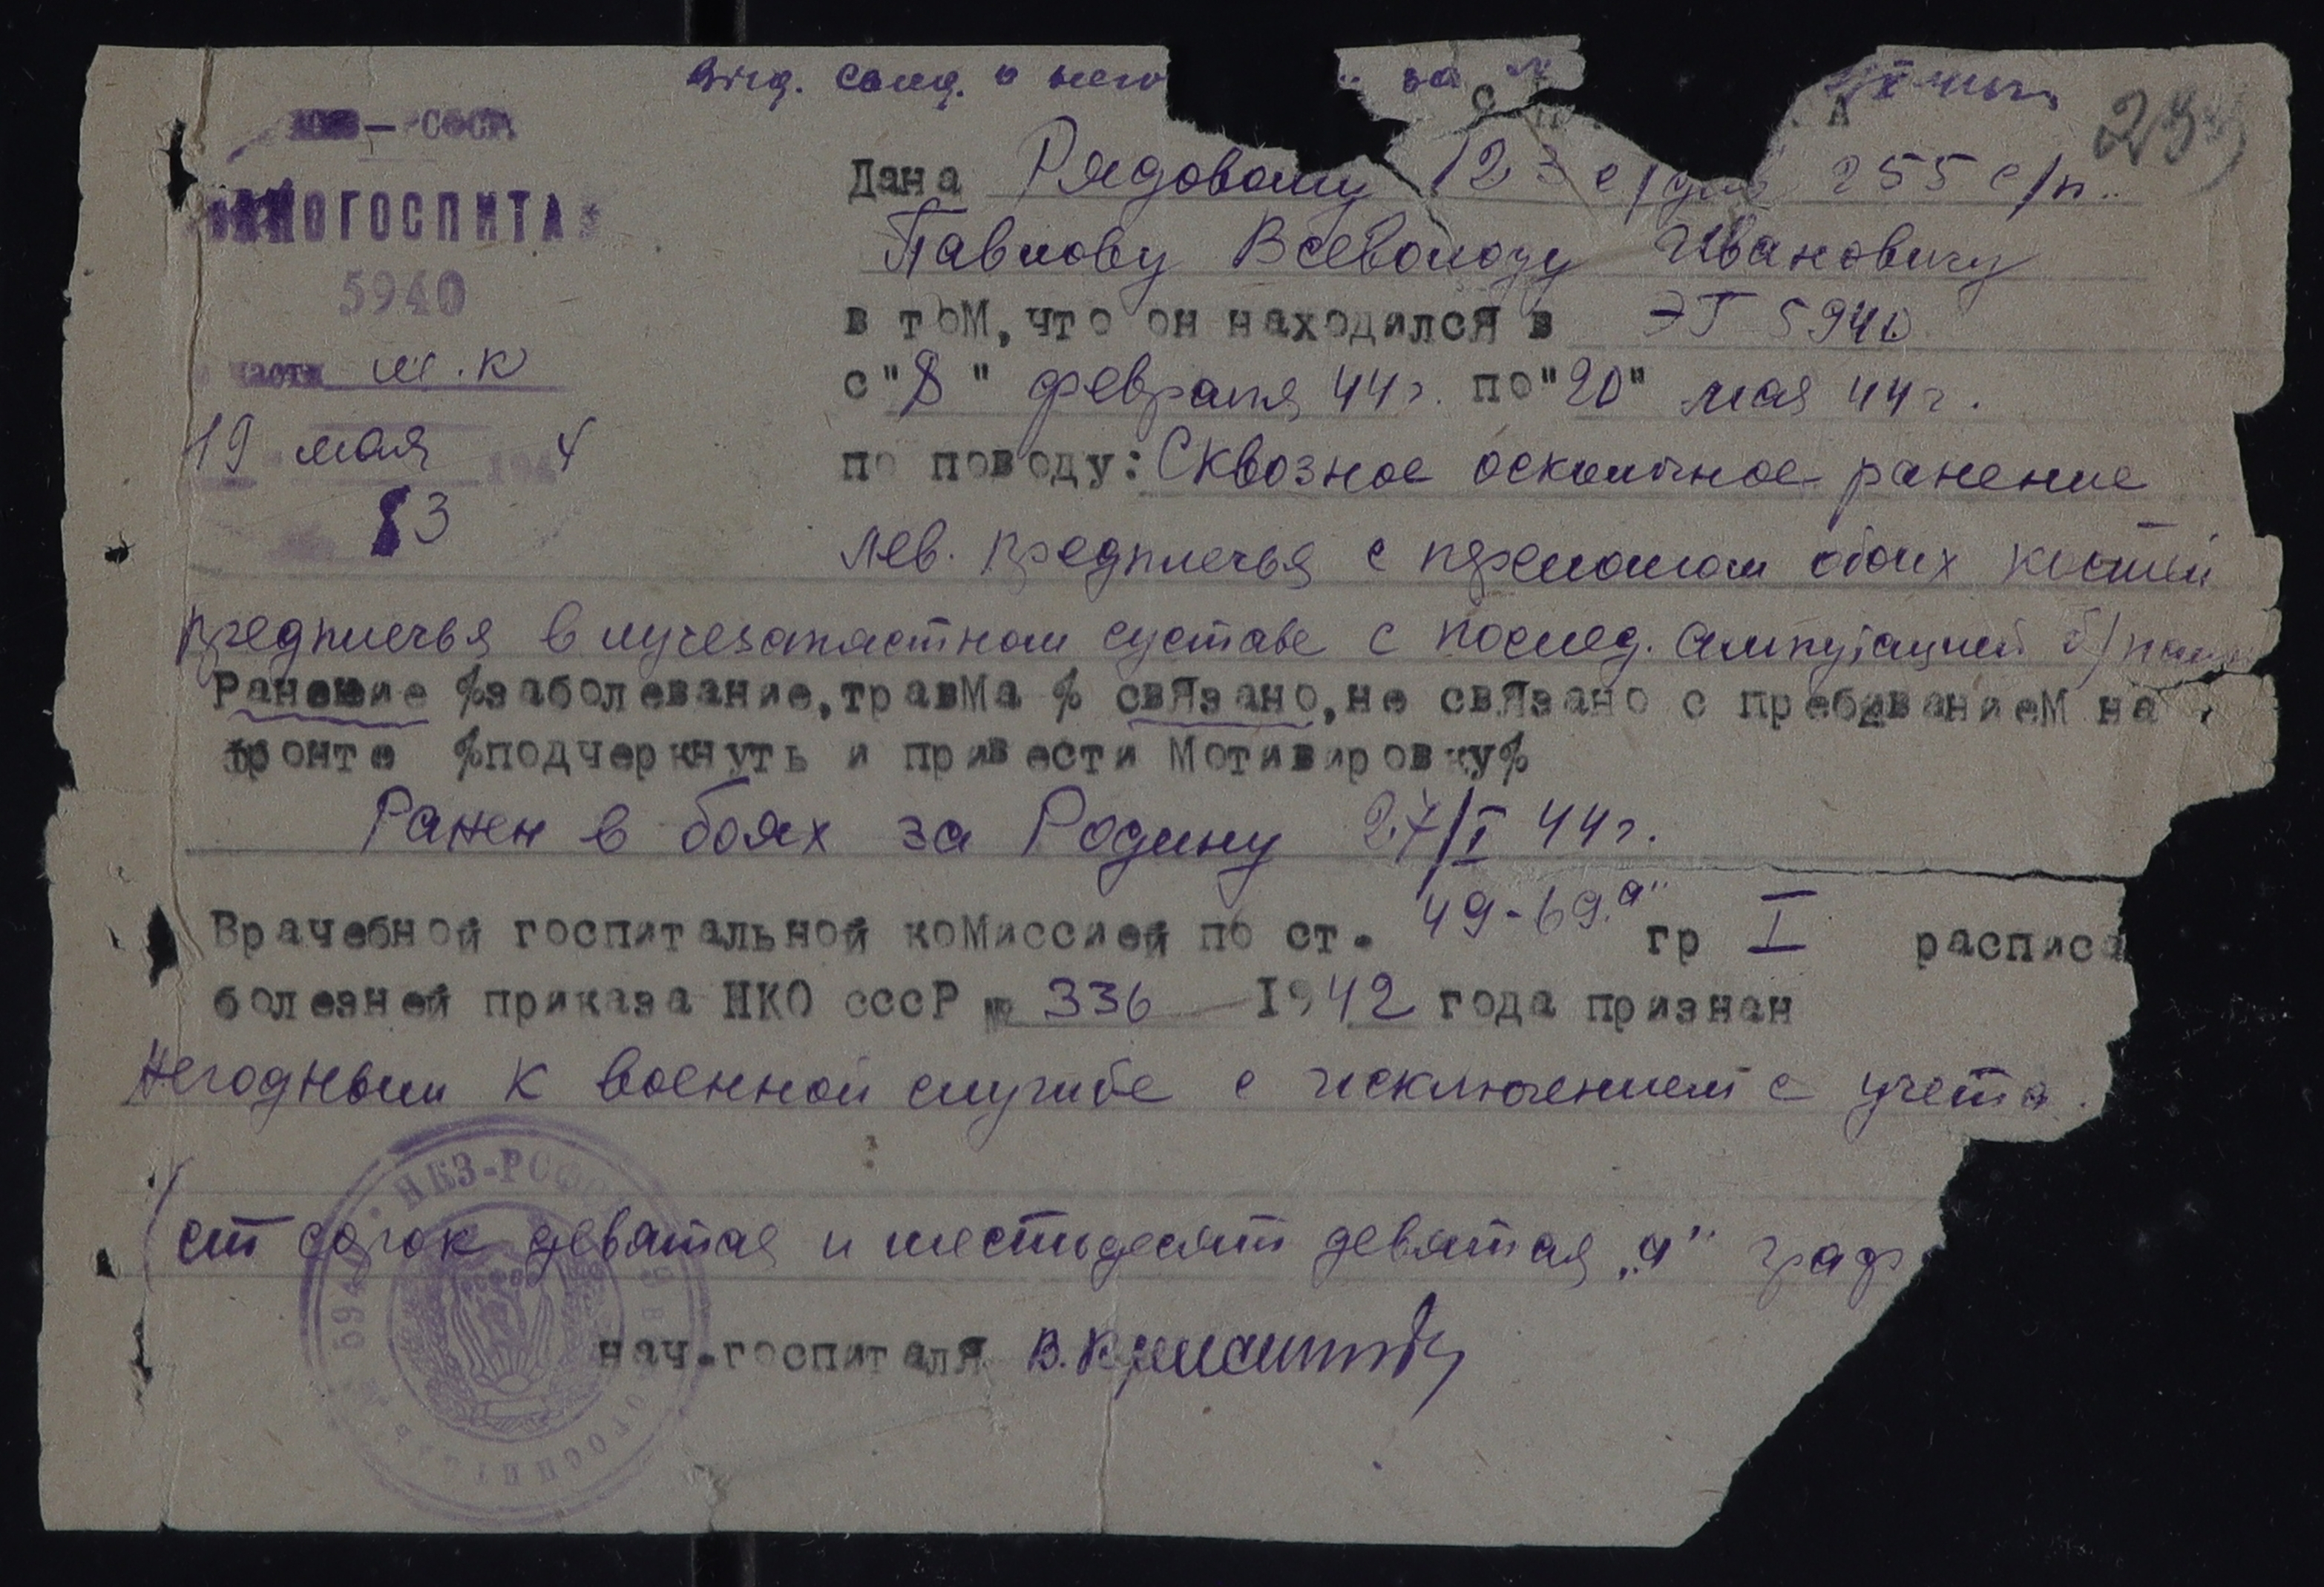 выд. солд. о него за
НКЗ — РСФСР
С П А
233
Дана Рядовому 123 с/див 255 с/п.
ГОСПИТА
Павлову Всеволоду Ивановичу
5940
в том, что он находился в ЭГ 5940
части м.к
с "8" февраля 44г. по "20" мая 44г.
19 мая 194 4
по поводу: Сквозное оскольчное ранение
83
лев. предплечья с переломом обоих костей
предплечья в лучезапястном суставе с послед. ампутацией
Ранение %заболевание, травма % связано, не связано с пребыванием на
фронте %подчеркнуть и привести мотивировку%
Ранен в боях за Родину 27/I 44г.
Врачебной госпитальной комиссией по ст. 49-69."а" гр I расписа
болезней приказа НКО СССР № 336 1942 года признан
негодным к военной службе с исключением с учета.
НКЗ-РСФ
ст сорок девятая и шестьдесят девятая "а" граф
нач.госпиталя